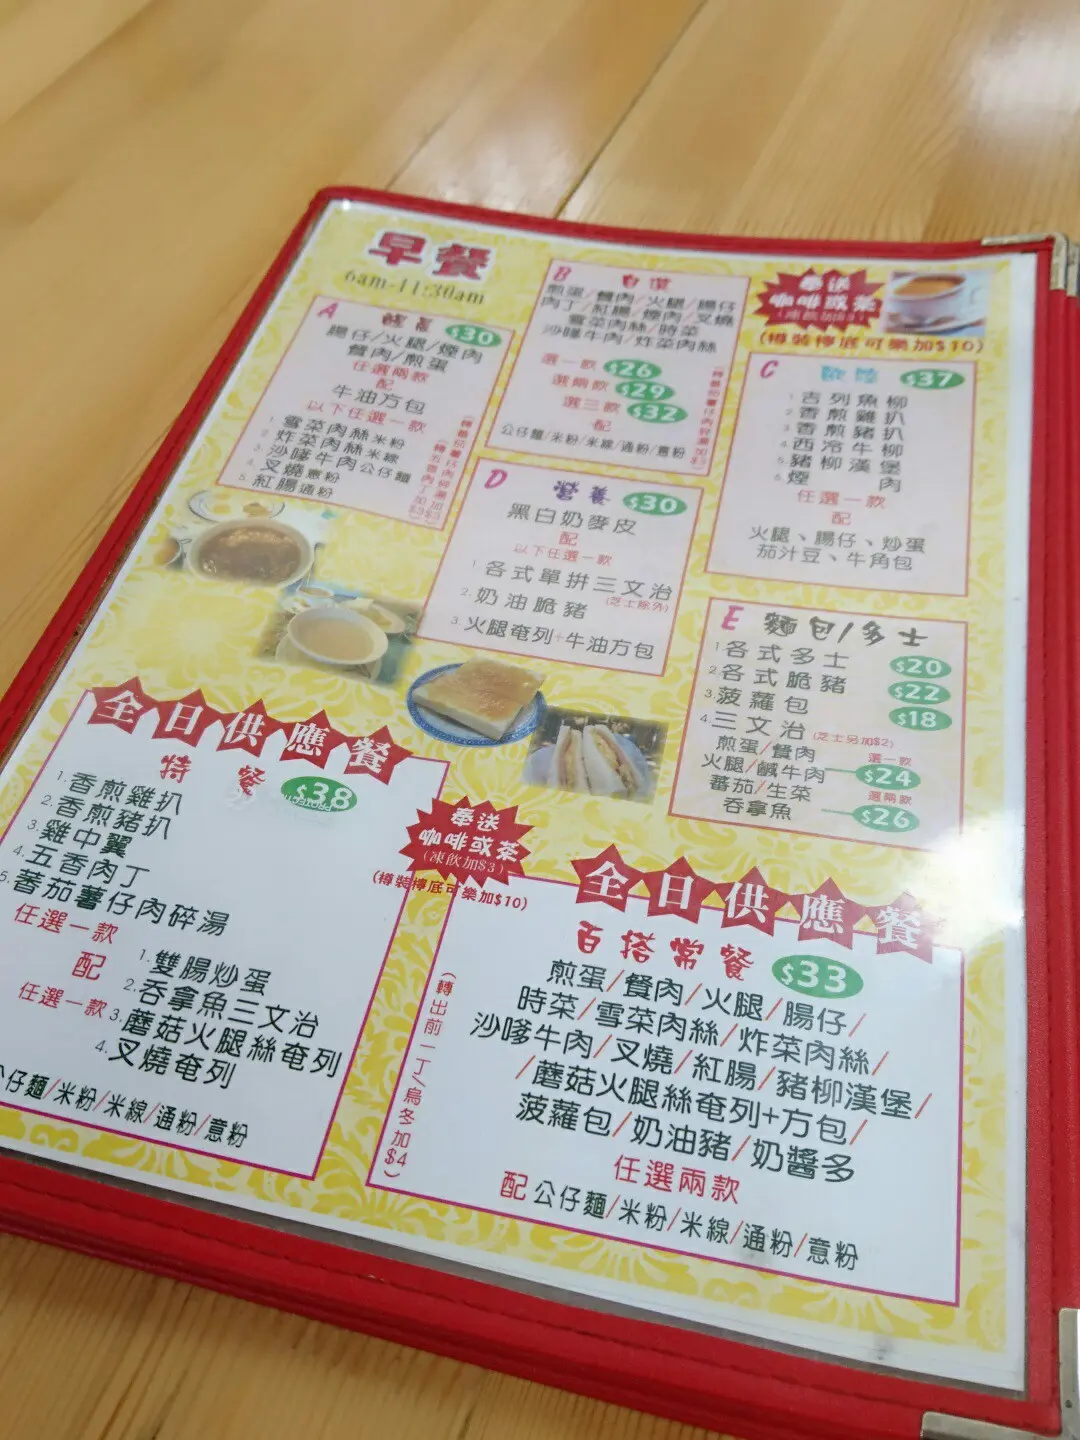 早餐
6am-11:30am
A
$30
腸仔/火腿/煙肉
餐肉/煎蛋
任選兩款
配
牛油方包
以下任選一款
1. 雪菜肉絲米粉
2. 炸菜肉絲米線
3. 沙嗲牛肉公仔麵
4. 叉燒意粉
5. 紅腸通粉
B
自選
煎蛋/餐肉/火腿/腸仔
肉丁/紅腸/煙肉/叉燒
雪菜肉絲/時菜
沙嗲牛肉/炸菜肉絲
選一款 $26
選兩款 $29
選三款 $32
配
公仔麵/米粉/米線/通粉/意粉
奉送
咖啡或茶
(凍飲加$3)
(樽裝檸底可樂加$10)
C
歐陸 $37
1. 吉列魚柳
2. 香煎雞扒
3. 香煎豬扒
4. 西冷牛柳
5. 豬柳漢堡
6. 煙肉
任選一款
配
火腿、腸仔、炒蛋
茄汁豆、牛角包
D
營養 $30
黑白奶麥皮
配
以下任選一款
1. 各式單拼三文治
(芝士除外)
2. 奶油脆豬
3. 火腿奄列+牛油方包
E 麵包/多士
1. 各式多士 $20
2. 各式脆豬 $22
3. 菠蘿包 $18
4. 三文治 (芝士另加$2)
煎蛋/餐肉 選一款
火腿/鹹牛肉 $24
蕃茄/生菜 選兩款
吞拿魚 $26
全日供應餐
特餐 $38
1. 香煎雞扒
2. 香煎豬扒
3. 雞中翼
4. 五香肉丁
5. 蕃茄薯仔肉碎湯
任選一款
配
任選一款
1. 雙腸炒蛋
2. 吞拿魚三文治
3. 蘑菇火腿絲奄列
4. 叉燒奄列
仔麵/米粉/米線/通粉/意粉
奉送
咖啡或茶
(凍飲加$3)
(樽裝檸底可樂加$10)
全日供應餐
百搭常餐 $33
煎蛋/餐肉/火腿/腸仔/
時菜/雪菜肉絲/炸菜肉絲/
沙嗲牛肉/叉燒/紅腸/豬柳漢堡/
/蘑菇火腿絲奄列+方包/
菠蘿包/奶油豬/奶醬多
任選兩款
配 公仔麵/米粉/米線/通粉/意粉
(轉出前一丁/烏冬加$4)